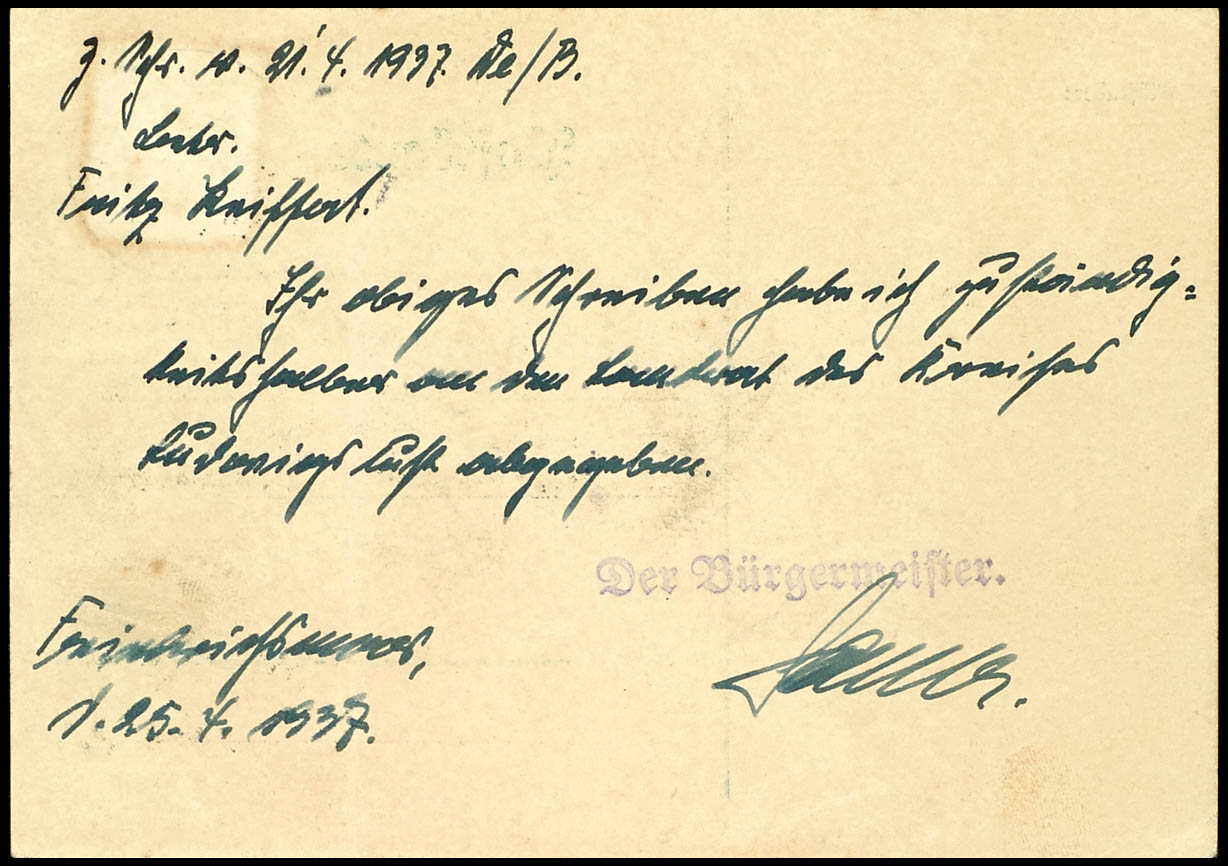 z. Schr. v. 21.4.1937. De/B.
Betr.
Fritz Reiffert.
Ihr obiges Schreiben habe ich zuständig=
keitshalber an den Landrat des Kreises
Ludwigslust abgegeben.
Der Bürgermeister.
d. 25.4.1937.